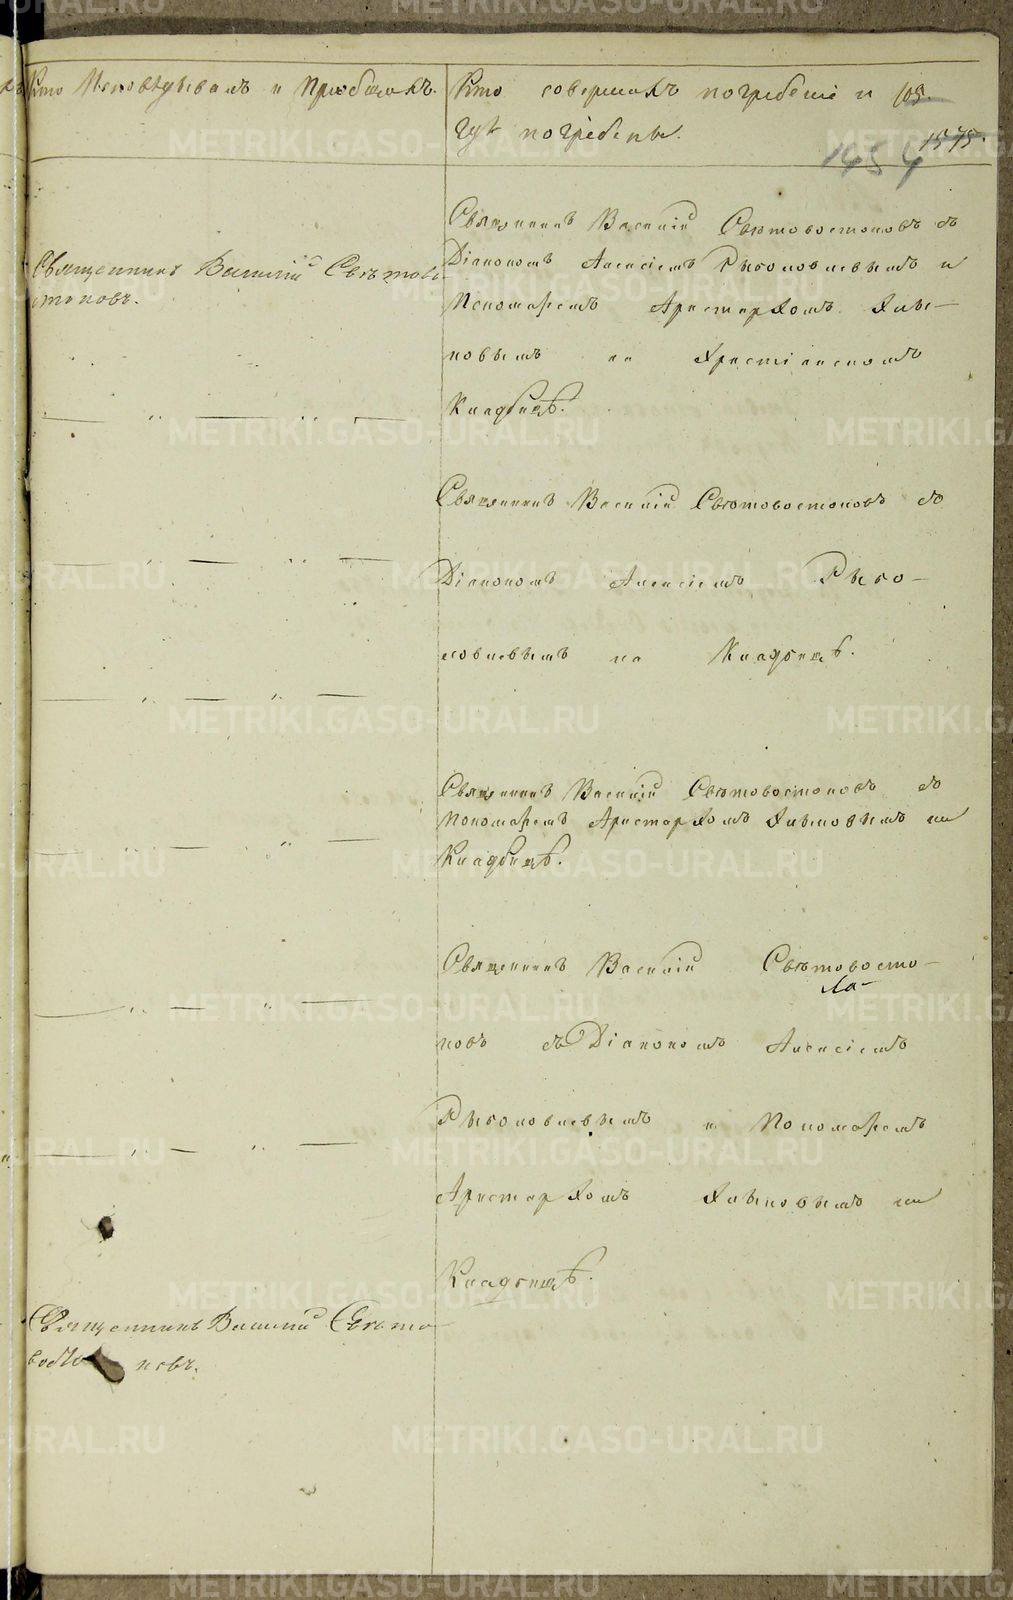 Кто Исповѣдывалъ и Приобщалъ.
Кто совершалъ погребенiе и
гдѣ погребены.
103.
1575.
1454
Священникъ Василiй Свѣтово-
стоковъ.
Священникъ Василiй Свѣтовостоковъ съ
Дiакономъ Алексiемъ Рыболовлевымъ и
Пономаремъ Аристархомъ Хлы-
новымъ на Христiанскомъ
Кладбищѣ.
Священникъ Василiй Свѣтовостоковъ съ
Дiакономъ Алексiемъ Рыбо-
ловлевымъ на Кладбищѣ.
Священникъ Василiй Свѣтовостоковъ съ
Пономаремъ Аристархомъ Хлыновымъ на
Кладбищѣ.
Священникъ Василiй Свѣтовосто-
ковъ съ Дiакономъ Алексiемъ
Рыболовлевымъ и Пономаремъ
Аристархомъ Хлыновымъ на
Кладбищѣ.
Священникъ Василiй Свѣто-
восто ковъ.
METRIKI.GASO-URAL.RU